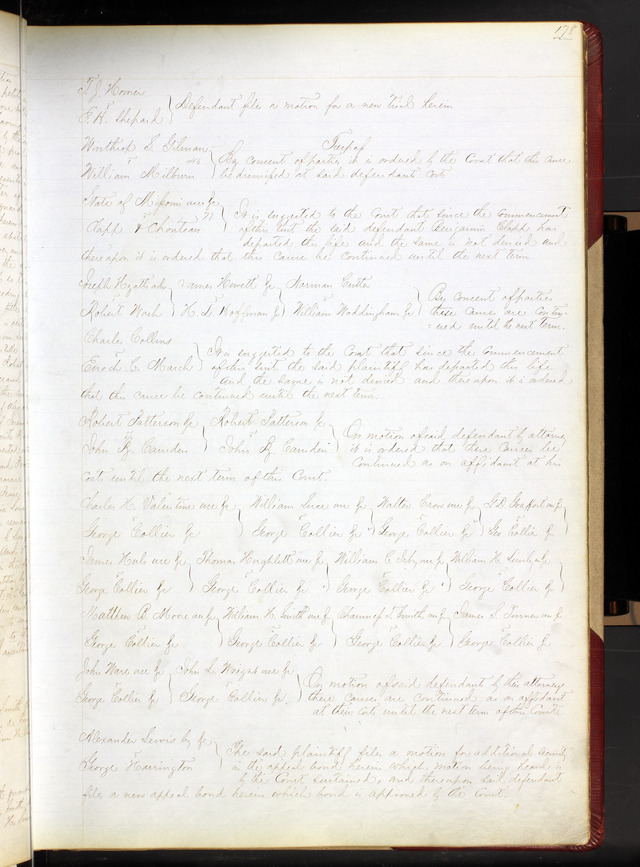 178
T. J. Horner
vs
E. H. Shepard } Defendant files a motion for a new trial herein
Winthrop S. Gilman
vs
William Milburn } Trespass
By consent of parties it is ordered by the Court that this cause
be dismissed at said defendant costs
State of Missouri use &c
vs
Clapp & Chouteau } It is suggested to the Court that since the commencement
of this suit the said defendant Benjamin Clapp has
departed this life and the same is not denied and
thereupon it is ordered that this cause be continued until the next term
Joseph } James Hewett &c } Norman Cutter
vs
Robert Wash } H. L. Hoffman &c } William Waddingham &c } By consent of parties
these causes are contin-
-ued until the next term.
Charles Collins
vs
Enoch C. March } It is suggested to the Court that since the commencement
of this suit the said plaintiff has departed this life
and the same is not denied and thereupon it is ordered
that this cause be continued until the next term.
Robert Patterson &c } Robert Patterson &c
vs
John B. Camden } John B. Camden } On motion of said defendant by attorney
it is ordered that these causes be
continued as on affidavit at his
costs until the next term of this Court.
Charles H. Valentine use &c } William use &c } Walter Crow use &c } use &c
vs
George Collier &c } George Collier &c } George Collier &c } Geo Collier &c
James use &c } Thomas Hughlett use &c } William C. use &c } William H. use &c
vs
George Collier &c } George Collier &c } George Collier &c } George Collier &c
Matthew B. Moore use &c } William H. Smith use &c } Chauncey S. Smith use &c } James S. Turner use &c
vs
George Collier &c } George Collier &c } George Collier &c } George Collier &c
John Ware use &c } John L. Wright use &c
vs
George Collier &c } George Collier &c } On motion of said defendant by their attorneys
these causes are continued as on affidavit
at their costs until the next term of this Court
Alexander Lewis by &c
vs
George Harrington } The said plaintiff files a motion for additional security
in the appeal bond herein which motion being heard is
by the Court sustained and thereupon said defendant
files a new appeal bond herein which bond is approved by the Court